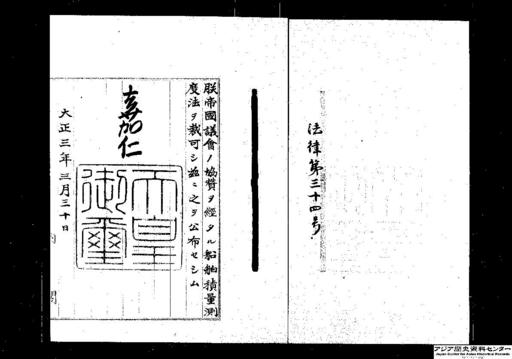 法律第三十四号
朕帝國議會ノ協賛ヲ經タル船舶積量測
度法ヲ裁可シ茲ニ之ヲ公布セシム
嘉仁
天皇
御璽
大正三年三月三十日
アジア歴史資料センター
Japan Center for Asian Historical Records